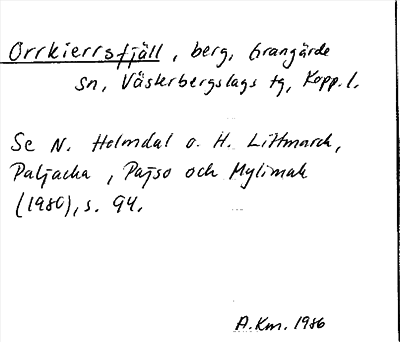 Orrkierrsfjäll, berg, Grangärde
sn, Västerbergslags tg, Kopp. l.
Se N. Holmdal o. H. Littmarck,
Paljacka, Pajso och Mylimak
(1980), s. 94.
A.Km. 1986